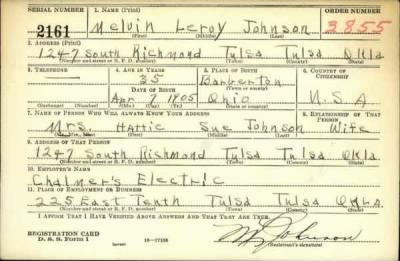 SERIAL NUMBER 1. NAME (Print) ORDER NUMBER
2161 Melvin Leroy Johnson 3855
(First) (Middle) (Last)
2. ADDRESS (Print)
1247 South Richmond Tulsa Tulsa Okla
(Number and street or R. F. D. number) (Town) (County) (State)
3. TELEPHONE 4. AGE IN YEARS 5. PLACE OF BIRTH 6. COUNTRY OF CITIZENSHIP
35 Barberton
DATE OF BIRTH (Town or county)
Apr 7 1905 Ohio U.S.A.
(Exchange) (Number) (Mo.) (Day) (Yr.) (State or country)
7. NAME OF PERSON WHO WILL ALWAYS KNOW YOUR ADDRESS 8. RELATIONSHIP OF THAT PERSON
Mrs. Hattie Sue Johnson Wife
(Mr., Mrs., Miss) (First) (Middle) (Last)
9. ADDRESS OF THAT PERSON
1247 South Richmond Tulsa Tulsa Okla
(Number and street or R. F. D. number) (Town) (County) (State)
10. EMPLOYER'S NAME
Chalmer's Electric
11. PLACE OF EMPLOYMENT OR BUSINESS
225 East Tenth Tulsa Tulsa OKLA.
(Number and street or R. F. D. number) (Town) (County) (State)
I AFFIRM THAT I HAVE VERIFIED ABOVE ANSWERS AND THAT THEY ARE TRUE.
REGISTRATION CARD
D. S. S. FORM 1 (over) 16—17105 Johnson
(Registrant's signature)